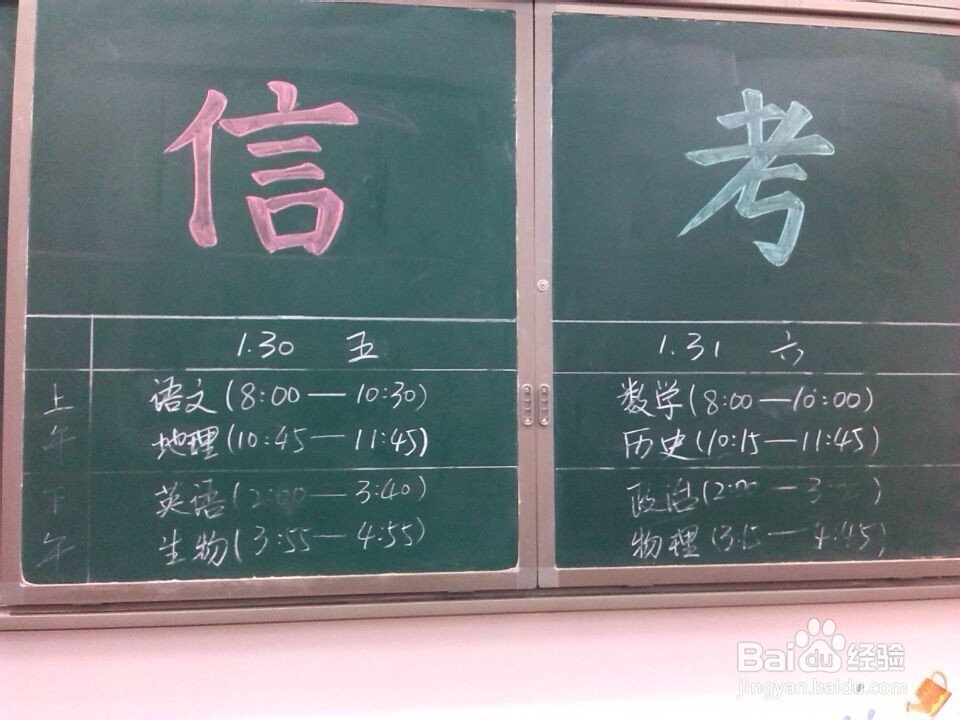 信 考
1.30 五
1.31 六
上午
语文(8:00—10:30)
地理(10:45—11:45)
数学(8:00—10:00)
历史(10:15—11:45)
下午
英语(2:00—3:40)
生物(3:55—4:55)
政治(2:00—3:
物理(3:15—4:45)
Baidu经验
jingyan.baidu.com